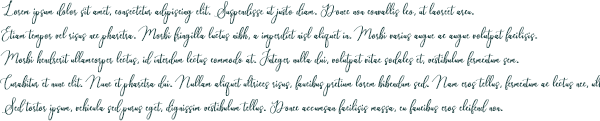 Lorem ipsum dolor sit amet, consectetur adipiscing elit. Suspendisse ut justo diam. Donec non convallis leo, at laoreet arcu.
Etiam tempor vel risus nec pharetra. Morbi fringilla luctus nibh, a imperdiet nisl aliquet in. Morbi varius augue ac augue volutpat facilisis.
Morbi hendrerit ullamcorper lectus, id interdum lectus commodo at. Integer nulla dui, volutpat vitae sodales et, vestibulum fermentum sem.
Curabitur et nunc elit. Nunc et pharetra dui. Nullam aliquet ultrices risus, faucibus pretium lorem bibendum sed. Nam eros tellus, fermentum ac lectus nec, ull
Sed tortor ipsum, vehicula sed purus eget, dignissim vestibulum tellus. Donec accumsan facilisis massa, eu faucibus eros eleifend non.